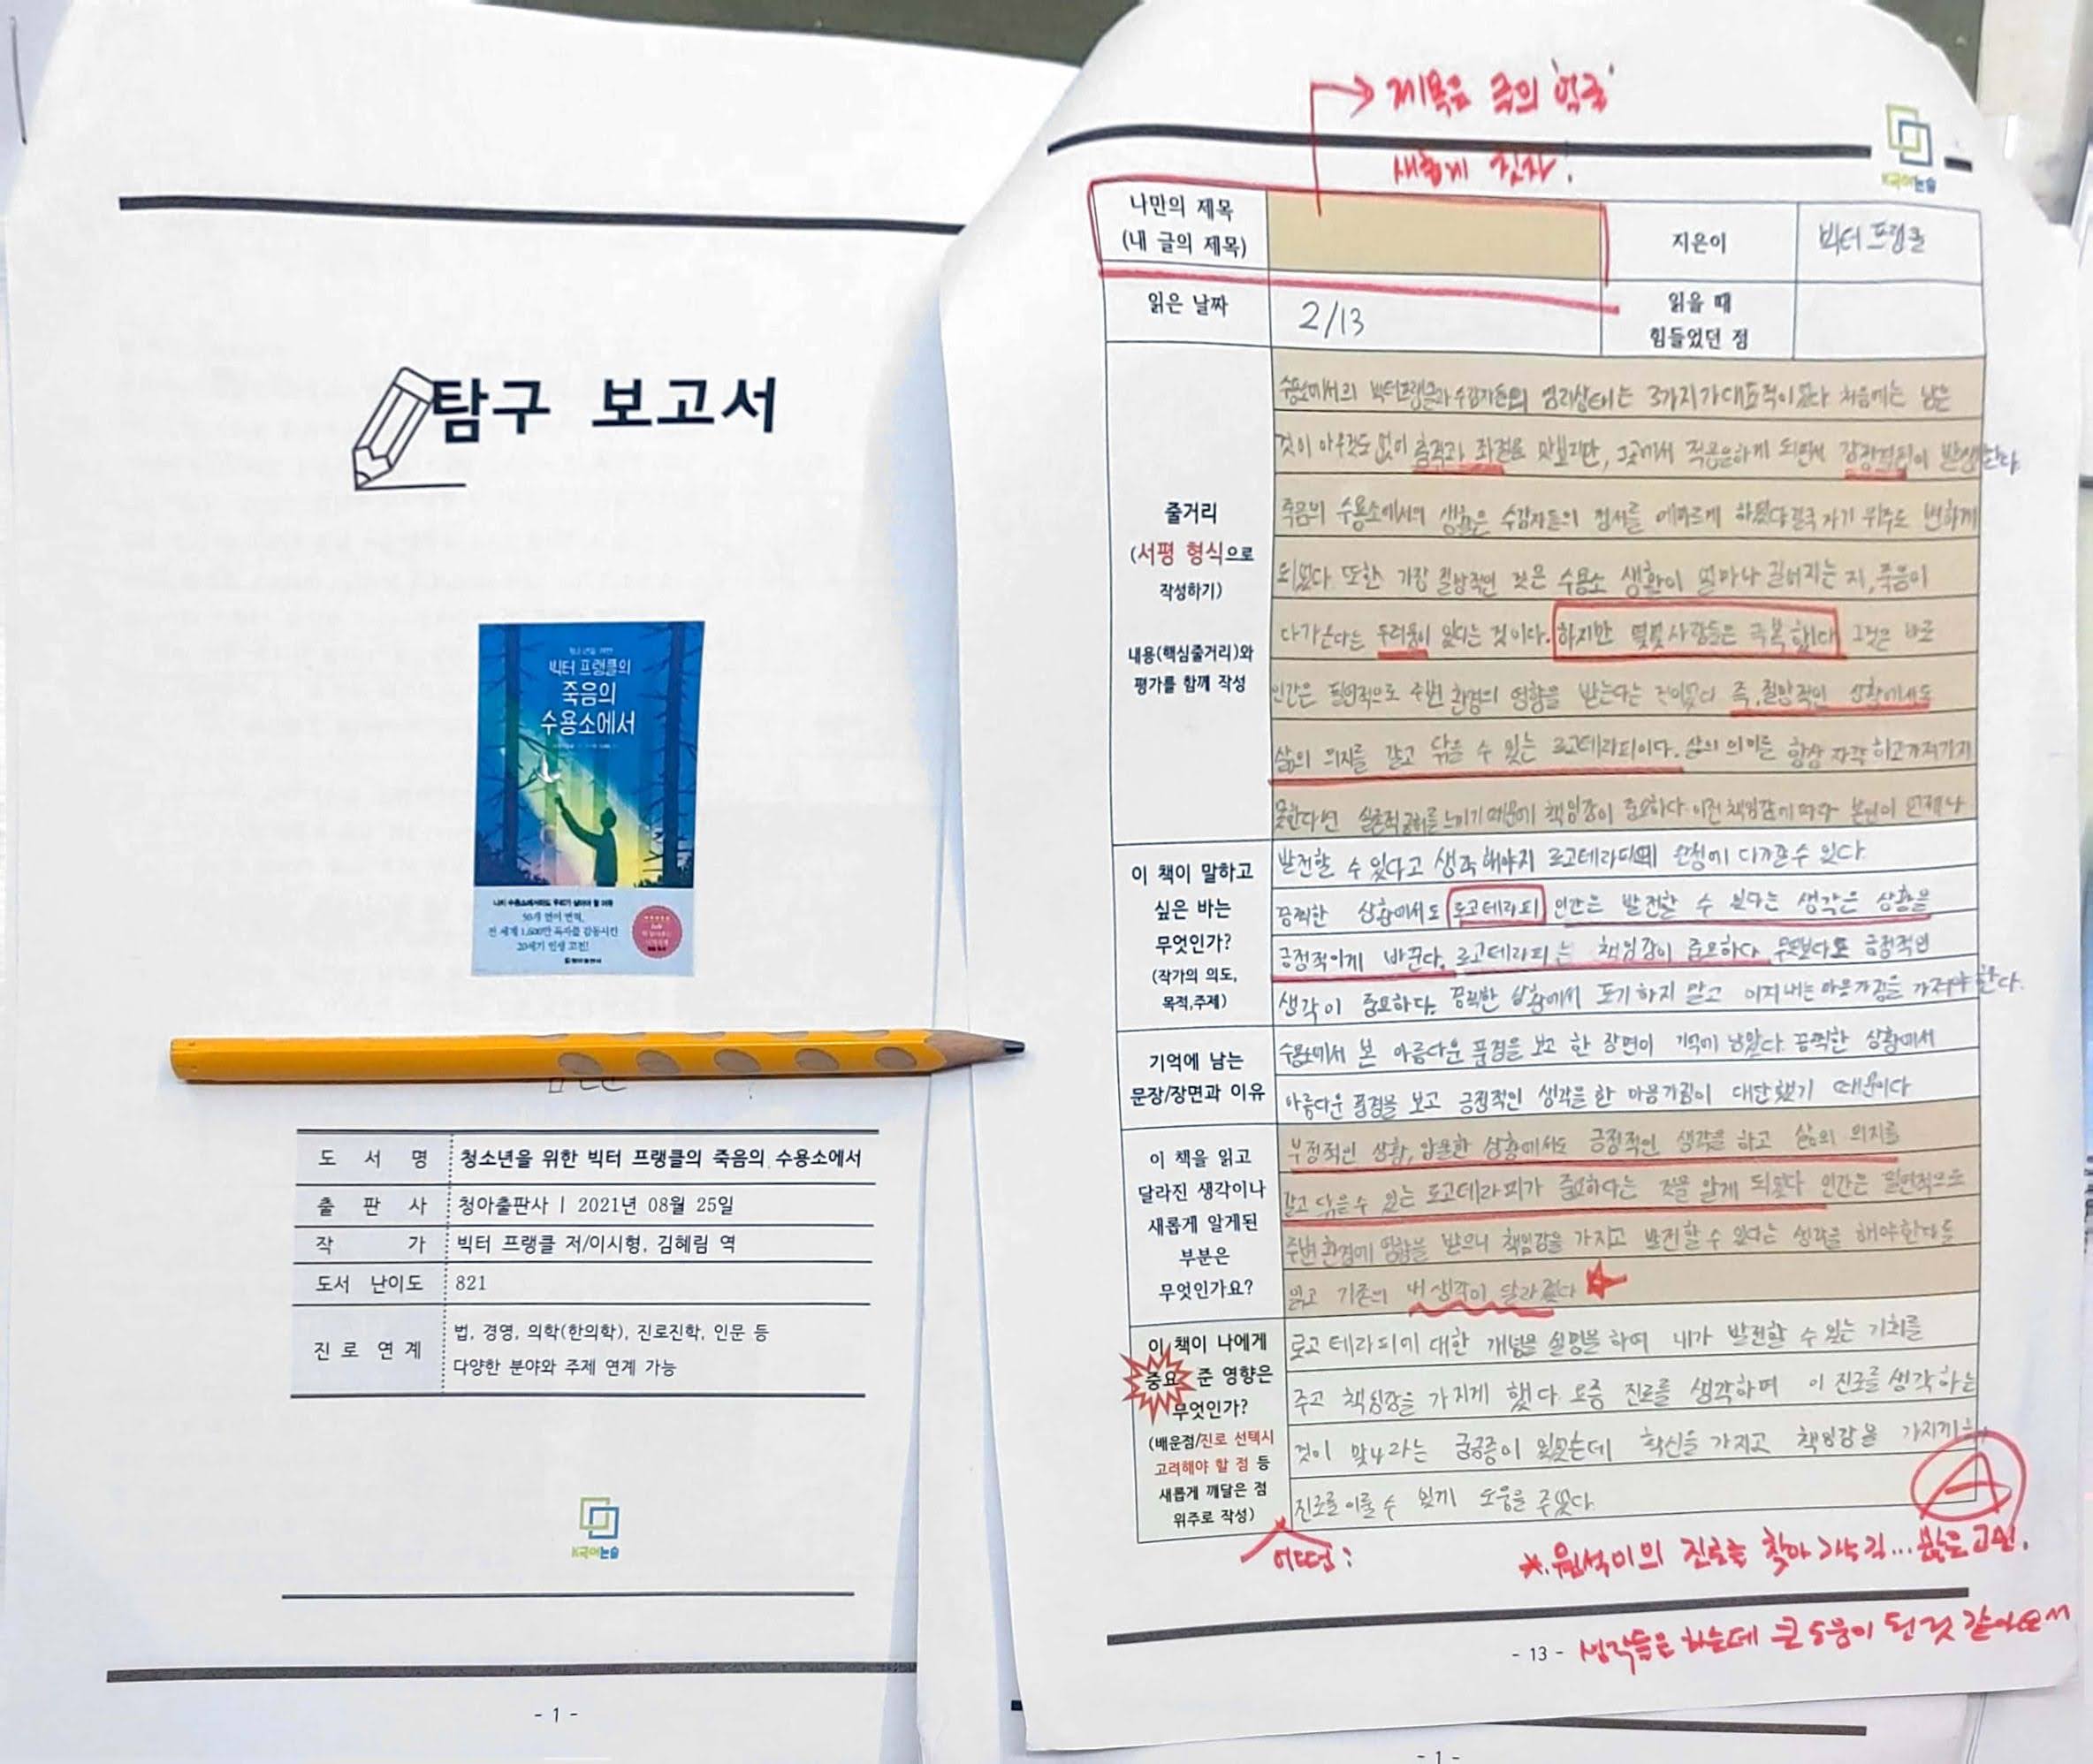 탐구 보고서
청소년을 위한
빅터 프랭클의
죽음의
수용소에서
나치 수용소에서마도 우리가 살아야 할 이유
50개 언어 번역,
전 세계 1,600만 독자를 감동시킨
20세기 인생 고전!
도 서 명 청소년을 위한 빅터 프랭클의 죽음의 수용소에서
출 판 사 청아출판사 | 2021년 08월 25일
작 가 빅터 프랭클 저/이시형, 김혜림 역
도서 난이도 821
진로 연계 법, 경영, 의학(한의학), 진로진학, 인문 등
다양한 분야와 주제 연계 가능
K국어논술
- 1 -
제목은 글의 '얼굴'
새롭게 짓자!
K국어논술
나만의 제목
(내 글의 제목)
지은이 빅터 프랭클
읽은 날짜 2/13
읽을 때
힘들었던 점
줄거리
(서평 형식으로
작성하기)
내용(핵심줄거리)와
평가를 함께 작성
수용소에서의 빅터프랭클과 수감자들의 심리상태는 3가지가 대표적이었다 처음에는 남은
것이 아무것도 없이 충격과 좌절을 맛보지만, 그곳에서 적응을하게 되면서 감정적인이 발생한다.
죽음의 수용소에서의 생활은 수감자들의 정서를 메마르게 하였다 결국 자기 위주로 변하게
되었다. 또한 가장 절망적인 것은 수용소 생활이 얼마나 길어지는 지, 죽음이
다가온다는 두려움이 있다는 것이다. 하지만 몇몇 사람들은 극복했다 그것은 바로
인간은 필연적으로 주변 환경의 영향을 받는다는 것이었다 즉, 절망적인 상황에서도
삶의 의지를 갈고 닦을 수 있는 로고테라피이다. 삶의 의미를 항상 자각하고 가져가지
못한다면 실존적공허를 느끼기 때문에 책임감이 중요하다. 이런 책임감에 따라 본인이 언제나
이 책이 말하고
싶은 바는
무엇인가?
(작가의 의도,
목적,주제)
발전할 수 있다고 생각해야지 로고테라피의 완성에 다가올 수 있다
끔찍한 상황에서도 로고테라피 인간은 발전할 수 있다는 생각은 상황을
긍정적이게 바꾼다. 로고테라피는 책임감이 중요하다 무엇보다도 긍정적인
생각이 중요하다. 끔찍한 상황에서 포기하지 말고 이겨내는 마음가짐을 가져야 한다.
기억에 남는
문장/장면과 이유
수용소에서 본 아름다운 풍경을 보고 한 장면이 기억에 남았다. 끔찍한 상황에서
아름다운 풍경을 보고 긍정적인 생각을 한 마음가짐이 대단했기 때문이다
이 책을 읽고
달라진 생각이나
새롭게 알게된
부분은
무엇인가요?
부정적인 상황, 암울한 상황에서도 긍정적인 생각을 하고 삶의 의지를
갈고 닦을 수 있는 로고테라피가 중요하다는 것을 알게 되었다 인간은 필연적으로
주변 환경에 영향을 받으니 책임감을 가지고 발전할 수 있다는 생각을 해야한다를
읽고 기존의 내 생각이 달라졌다
이 책이 나에게
중요 준 영향은
무엇인가?
(배운점/진로 선택시
고려해야 할 점 등
새롭게 깨달은 점
위주로 작성)
로고테라피에 대한 개념을 설명을 하며 내가 발전할 수 있는 기회를
주고 책임감을 가지게 했다. 요즘 진로를 생각하며 이 진로를 생각하는
것이 맞나라는 궁금증이 있었는데 확신을 가지고 책임감을 가지게
진로를 이룰 수 있게 도움을 주었다.
A
어떤:
*. 원석이의 진로를 찾아가는 길... 많은 고민.
- 13 - 생각들은 하는데 큰 도움이 된 것 같아요
- 1 -